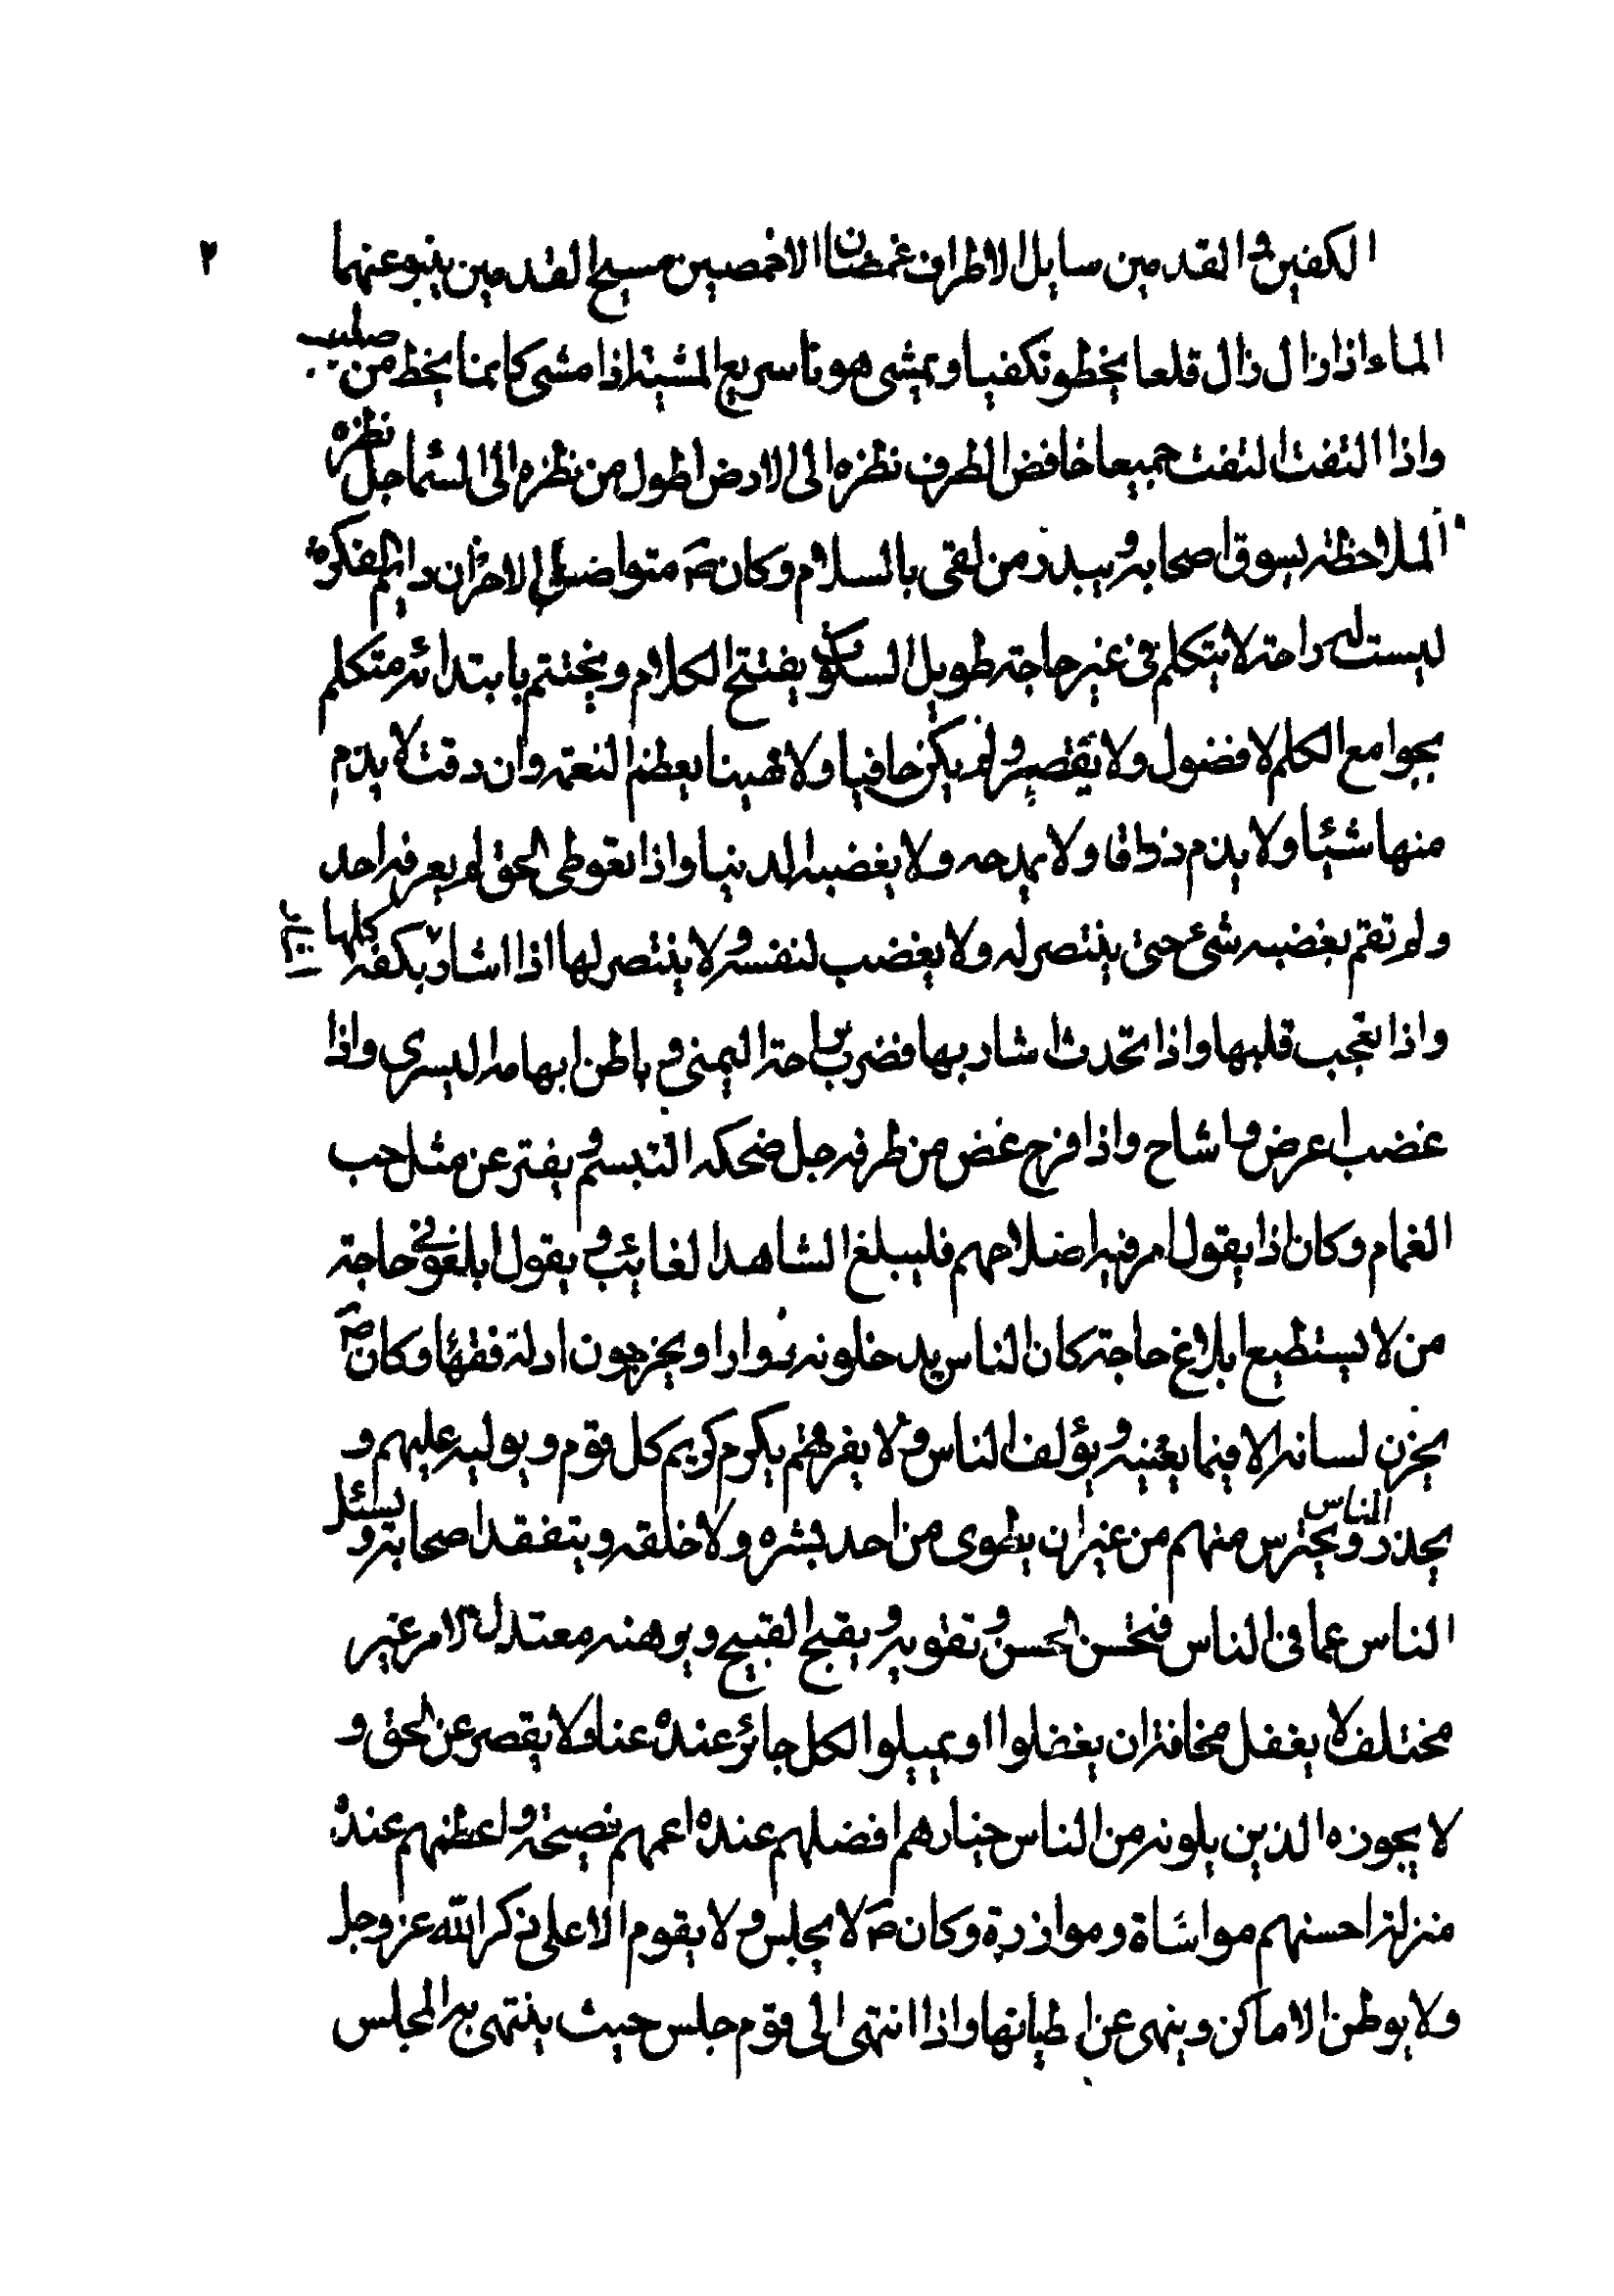 ٢
الكفين و القدمين سايل الاطراف غمضان الاخمصين مسيح القدمين ينبو عنهما
الماء اذا زال زال قلعا يخطو تكفيا و يمشى هونا سريع المشية اذا مشى كانما يخط من صبب
واذا التفت التفت جميعا خافض الطرف نظره الى الارض اطول من نظره الى السما جل نظره
الملاحظة يسوق اصحابه و يبدر من لقى بالسلام و كان ص متواضل الاحزان دايم الفكرة
ليست له راحة لا يتكلم فى غير حاجة طويل السكوت يفتتح الكلام و يختتم بابتدائه متكلم
بجوامع الكلم لا فضول ولا تقصير و لم يكن جافيا ولا مهينا يعظم النعمة وان دقت لا يذم
منها شيئا ولا يذم ذواقا ولا يمدحه ولا يغضبه الدنيا واذا تعوطى الحق لم يعرفه احد
ولم تقم بغضبه شئ حتى ينتصر له ولا يغضب لنفسه و لا ينتصر لها اذا اشار بكفه كلها
واذا تعجب قلبها واذا تحدث اشار بها فضرب براحته اليمنى و باطن ابهامه اليسرى واذا
غضب اعرض و اشاح واذا فرح غض من طرفه جل ضحكه التبسم و يفتر عن مثل حب
الغمام و كان اذا يقول امر فيه اضلاحهم فليبلغ الشاهد الغائب و يقول ابلغونى حاجة
من لا يستطيع ابلاغ حاجة كان الناس يدخلونه زوارا و يخرجون ادلة فقهاء و كان ص
يخزن لسانه الا فيما يعنيه و يؤلف الناس و لا يفرقهم يكرم كريم كل قوم و يوليه عليهم و
يحذر الناس و يحترس منهم من غير ان يطوى من احد بشره و لا خلقه و يتفقد اصحابه و يسئل
الناس عما فى الناس فيحسن الحسن و تقويه و يقبح القبيح و يوهنه معتدل الامر غير
مختلف لا يغفل مخافة ان يغفلوا او يميلوا لكل جائز عنده عنا و لا يقصر عن الحق و
لا يجوزه الذين يلونه من الناس خيارهم افضلهم عنده اعمهم نصيحة و اعظمهم عنده
منزلة احسنهم مواساة و موازرة و كان ص لا يجلس و لا يقوم الا على ذكر الله عز و جل
ولا يوطن الاماكن و ينهى عن ايطيانها واذا انتهى الى قوم جلس حيث ينتهى به المجلس